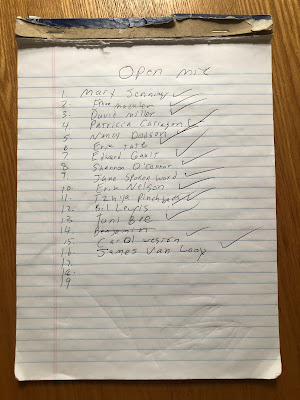 Open mic
1. Mary Jennings
2.
3. David Miller
4 Patricia Carragon
5 Nancy Dodson
6 Erik Tate
7 Edward Gault
8 Shannon O'Connor
9. Jane Spokenword
10. Erik Nelson
11. Tzivia Pinchbeck
12. Bil Lewis
13. Toni Bee
14. Benjamin
15. Carol Weston
16. James Van Looy
17.
18.
19